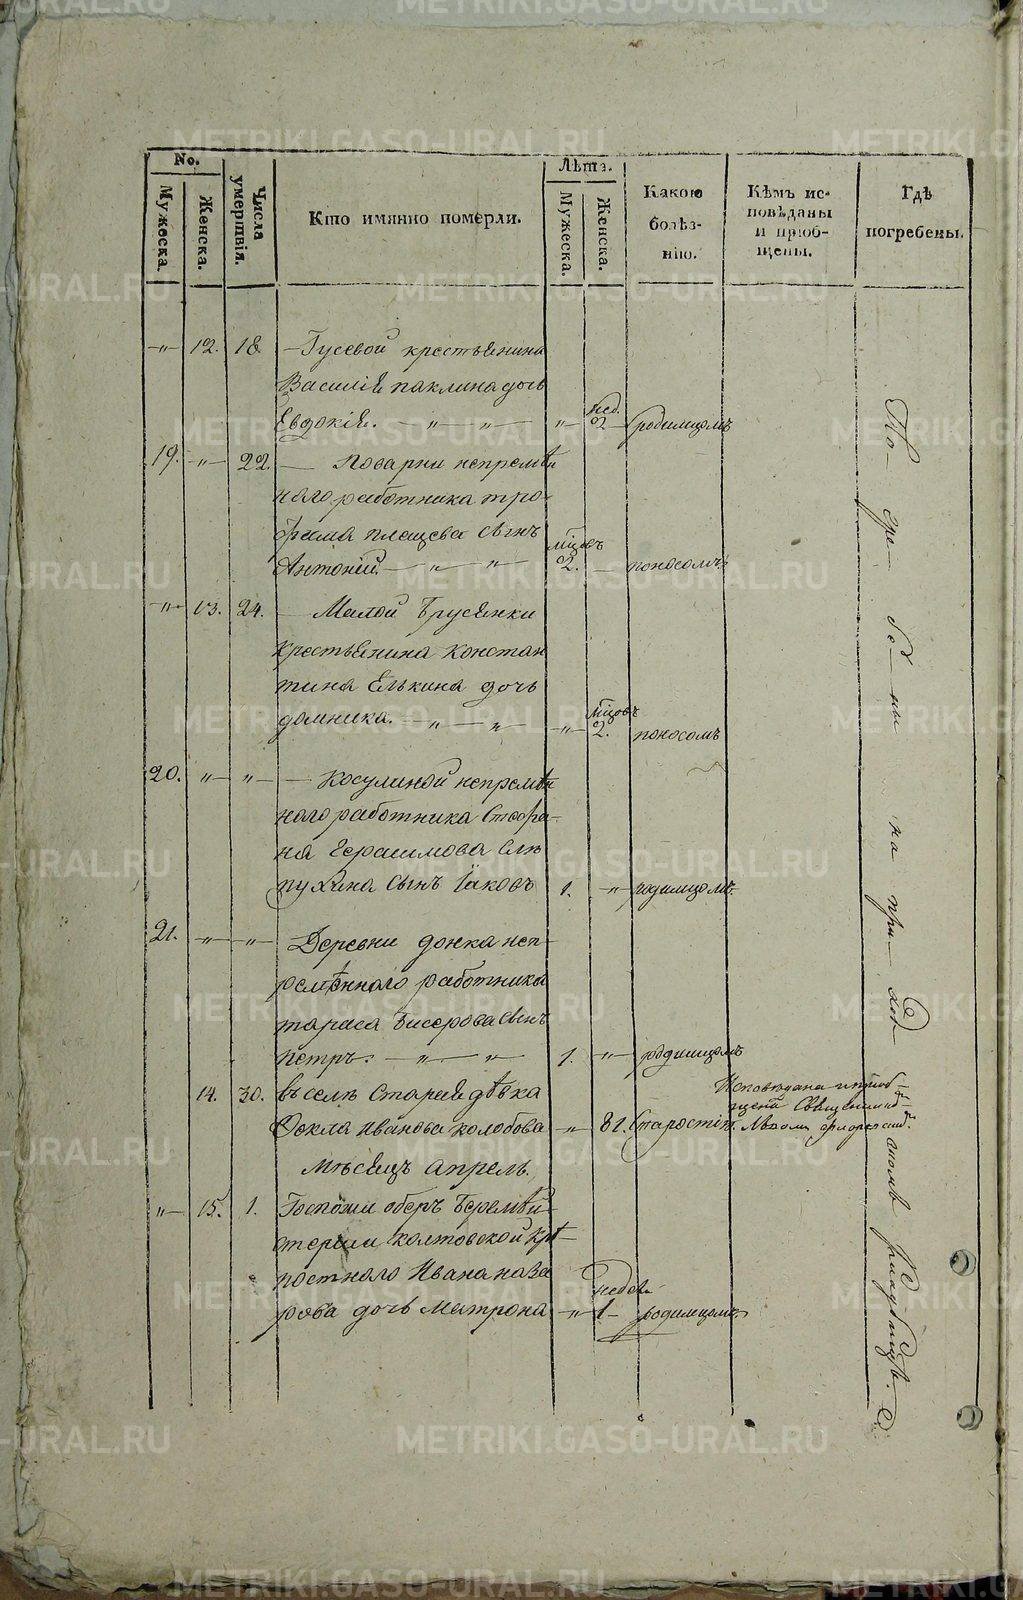 No.
Мужеска.
Женска.
Числа умертвія.
Кто имянно померли.
Лѣта.
Мужеска.
Женска.
Какою болѣз-
нію.
Кѣмъ ис-
повѣданы
и пріоб-
щены.
Гдѣ
погребены.
-"- 12. 18. Гусевой крестьянина
Василія Паклина дочь
Евдокія. - " - " - " 2 нед. родимцомъ
19. -"- 22. Поварни непремѣн
наго работника Тро-
фима Плещева сынъ
Антоній. - " - " - мцовъ 2. - поносомъ
-"- 13. 24. Малой Брусянки
крестьянина Констан
тина Елькина дочь
Домника. - " - " - -"- мцовъ 2. поносомъ
20. -"- -"- Косулиной непремѣн
наго работника Стефа-
на Герасимова Слѣ
пухина сынъ Іаковъ 1. -"- родимцомъ
21. -"- -"- Деревни Донка неп-
ремѣннаго работника
Тараса Бисерова сынъ
Петръ. - " - " - 1. -"- родимцомъ
14. 30. въ селѣ Старая дѣвка
Фекла Иванова Колобова -"- 81. Старостію
Исповѣдана и пріоб-
щена Священник
Мѣсяцъ апрель.
-"- 15. 1. Госпожи оберъ
Колтовской крѣ-
постнаго Ивана Наза
рова дочь Матрона -"- недѣли 1 - родимцомъ.
По-гре-бе-ны на при-ход-скомъ кладбищѣ.
METRIKI.GASO-URAL.RU